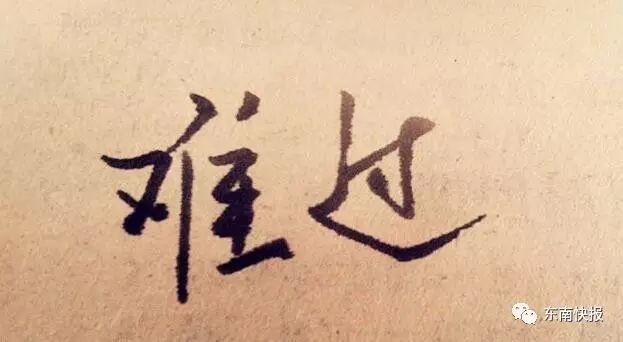 难过
东南快报